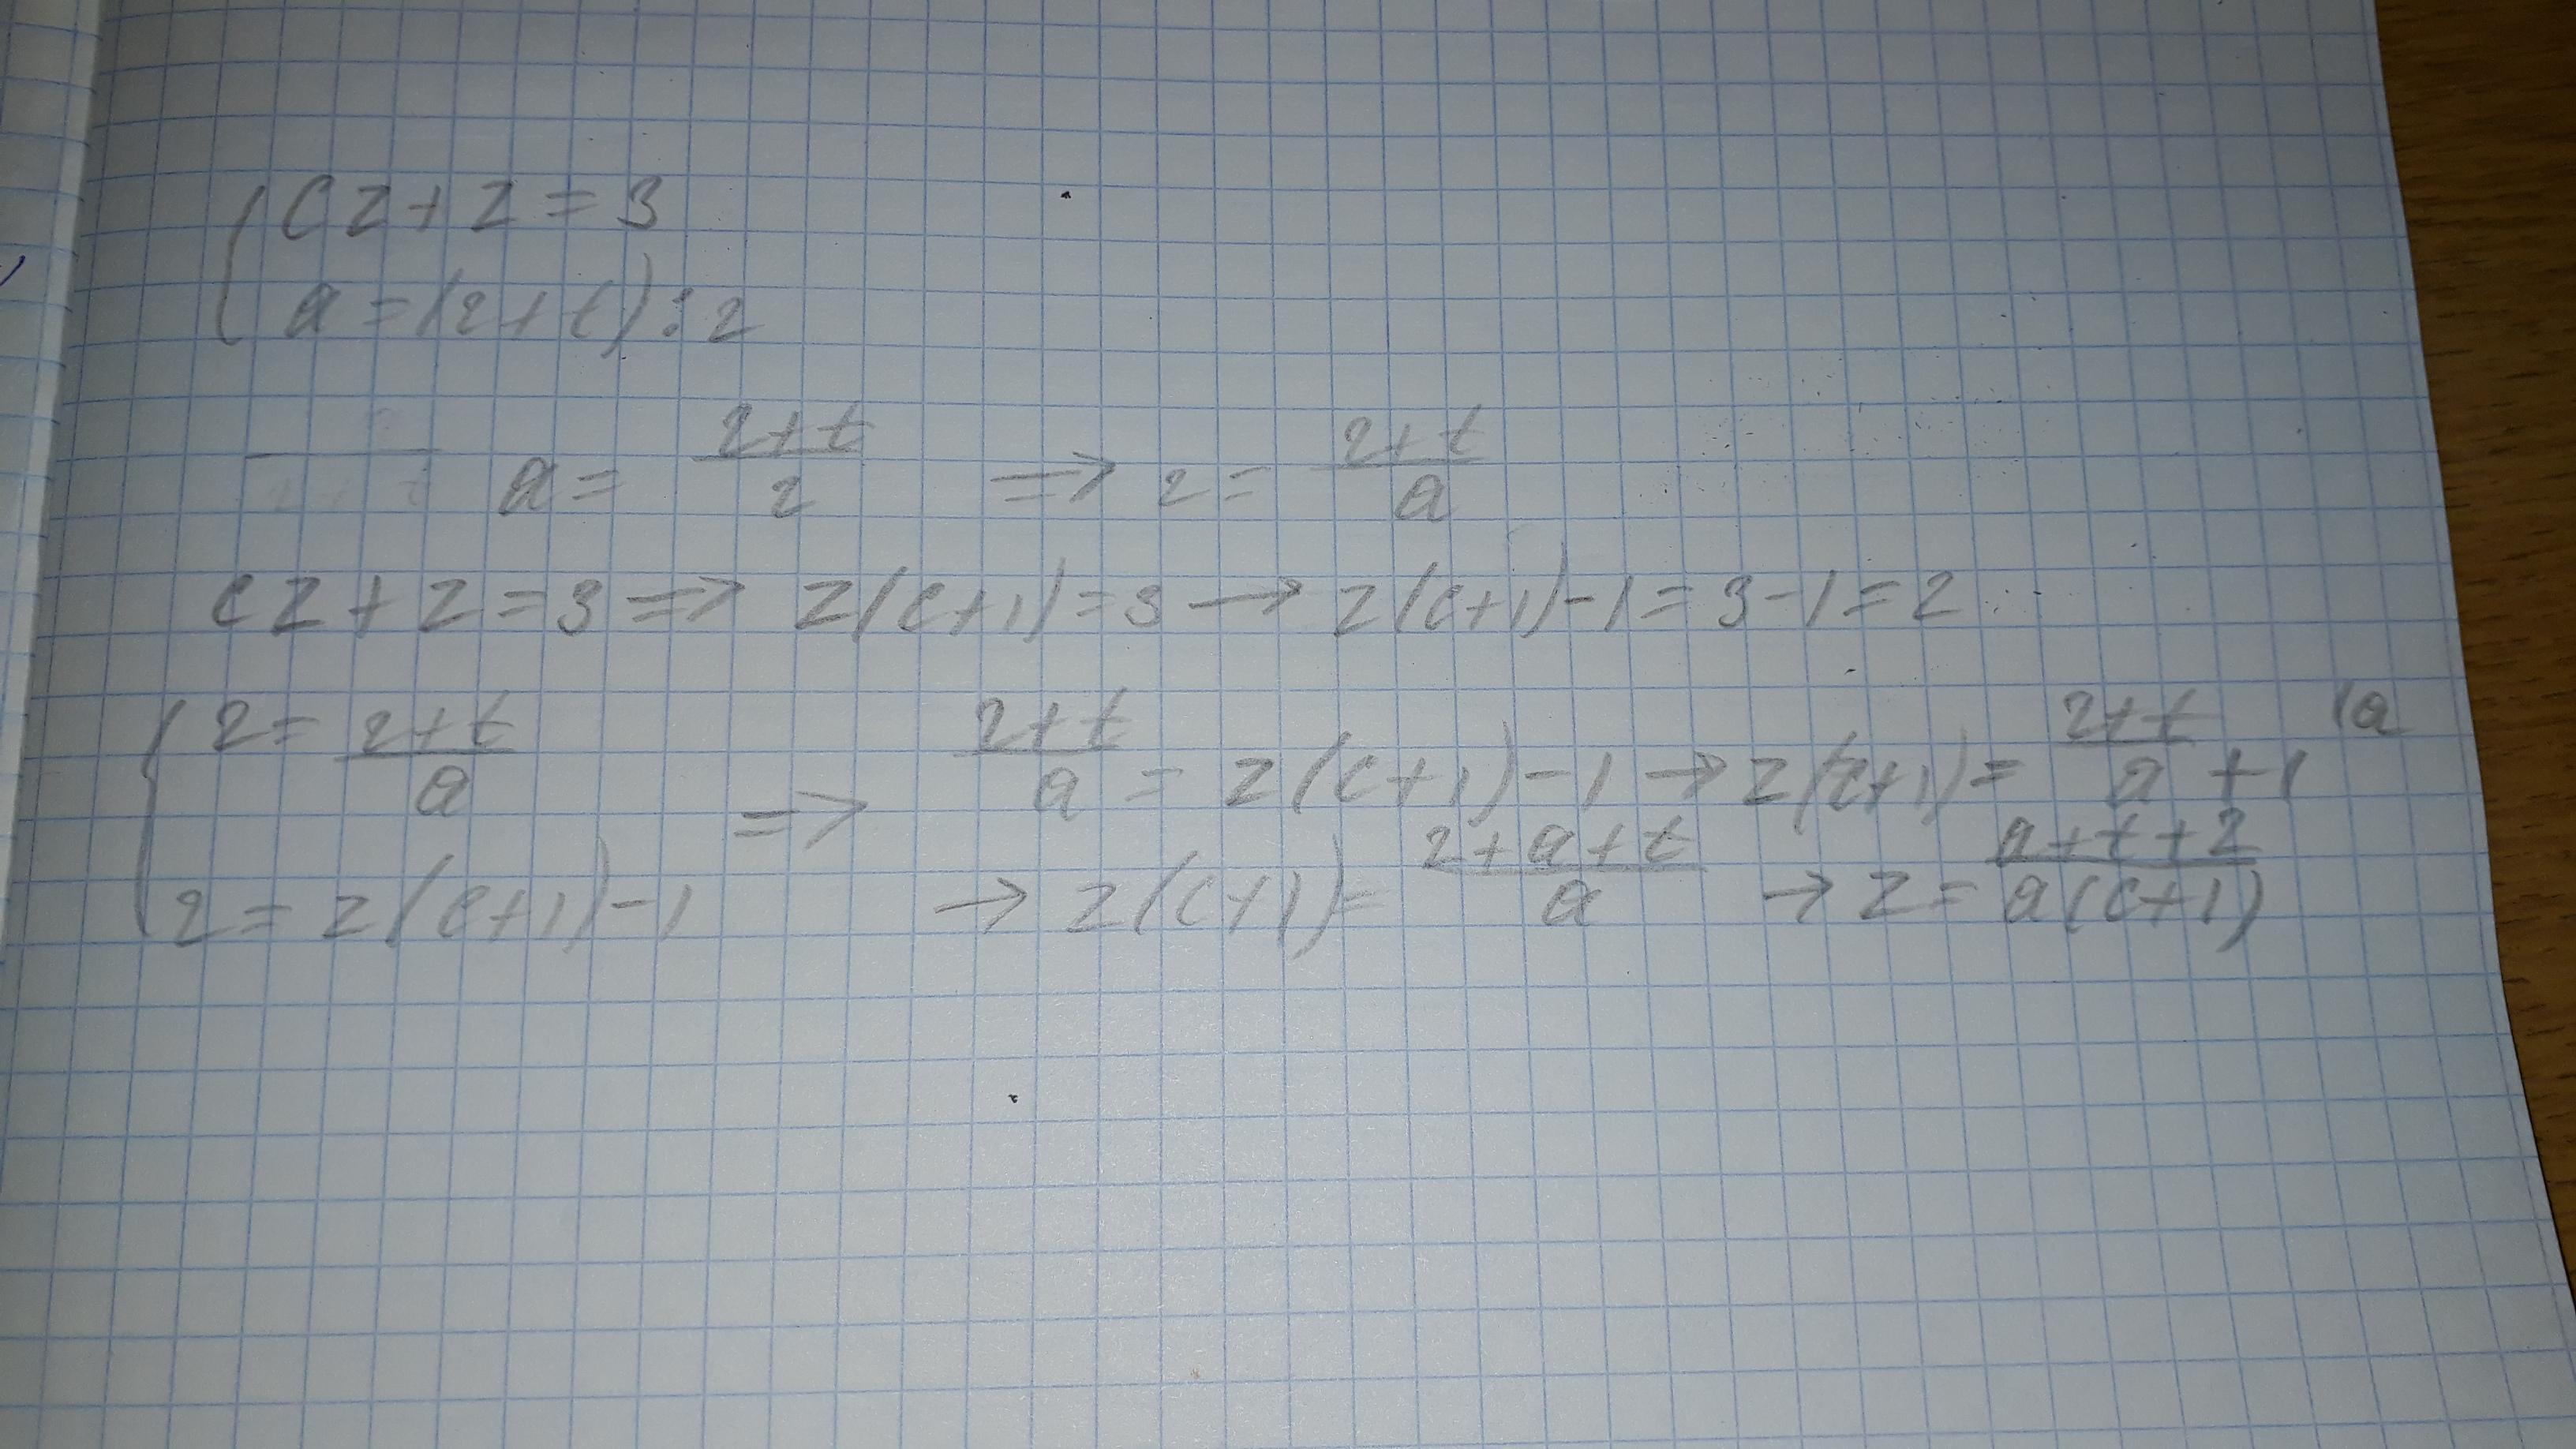 cz+z=3
a=(2+t):2
a = \frac{2+t}{2} => 2 = \frac{2+t}{a}
cz+z=3 => z(c+1)=3 → z(c+1)-1=3-1=2
2 = \frac{2+t}{a} => \frac{2+t}{a} = z(c+1)-1 → z(c+1) = \frac{2+t}{a} + 1 |a
2=z(c+1)-1 → z(c+1) = \frac{2+a+t}{a} → z = \frac{a+t+2}{a(c+1)}